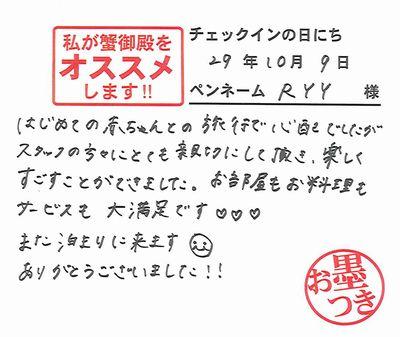 私が蟹御殿を
オススメ
します!!
チェックインの日にち
29年10月9日
ペンネーム RYY 様
はじめての赤ちゃんとの旅行で心配でしたが
スタッフの方々にとても親切にして頂き、楽しく
すごすことができました。お部屋もお料理も
サービスも大満足です♡♡♡
また泊まりに来ます
ありがとうございました!!
お墨つき